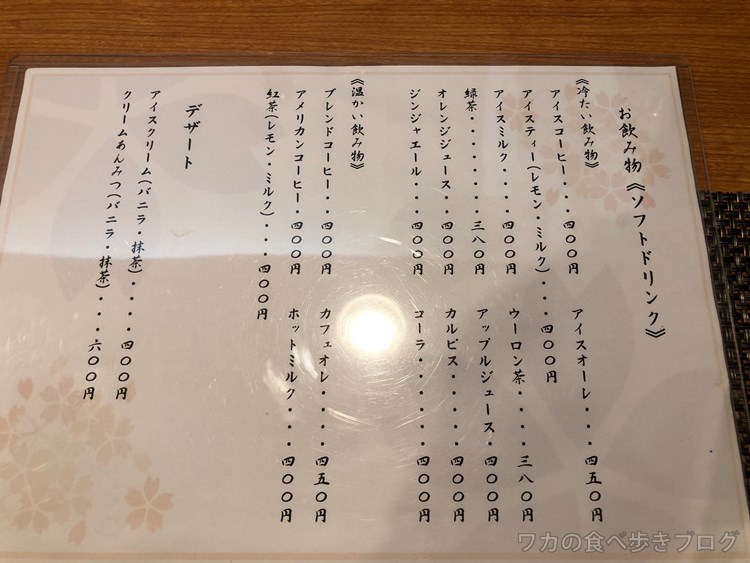 お飲み物《ソフトドリンク》
《冷たい飲み物》
アイスコーヒー・・・四〇〇円
アイスオーレ・・・四五〇円
アイスティー(レモン・ミルク)・・・四〇〇円
アイスミルク・・・・四〇〇円
ウーロン茶・・・・三八〇円
緑茶・・・・・・・三八〇円
アップルジュース・四〇〇円
オレンジジュース・・四〇〇円
カルピス・・・・・四〇〇円
ジンジャエール・・・四〇〇円
コーラ・・・・・・四〇〇円
《温かい飲み物》
ブレンドコーヒー・・四〇〇円
カフェオレ・・・・四五〇円
アメリカンコーヒー・四〇〇円
ホットミルク・・・四〇〇円
紅茶(レモン・ミルク)・・・四〇〇円
デザート
アイスクリーム(バニラ・抹茶)・・・・四〇〇円
クリームあんみつ(バニラ・抹茶)・・・六〇〇円
ワカの食べ歩きブログ